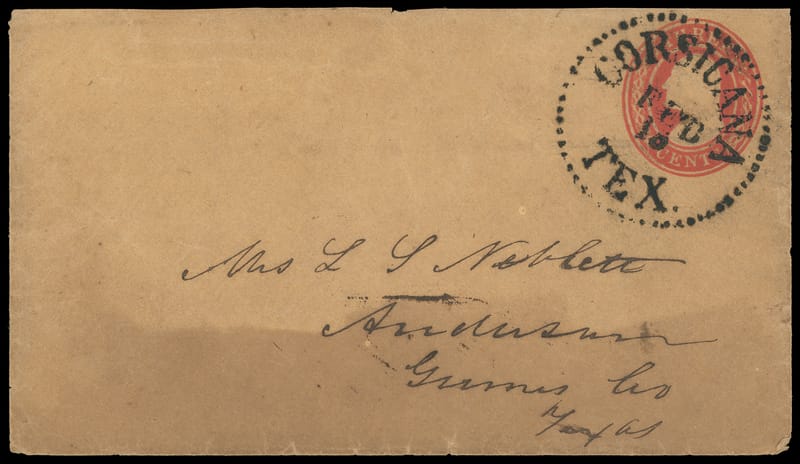 CORSICANA
FEB
18
TEX.
THREE
CENTS
Mrs L S Neblett
Anderson
Grimes Co
Texas